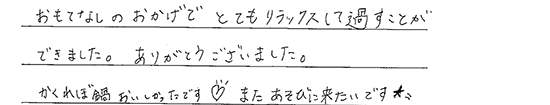 おもてなしのおかげで とてもリラックスして過すことが
できました。 ありがとうございました。
かくれぼ鍋おいしかったです♡ またあそびに来たいです★ミ